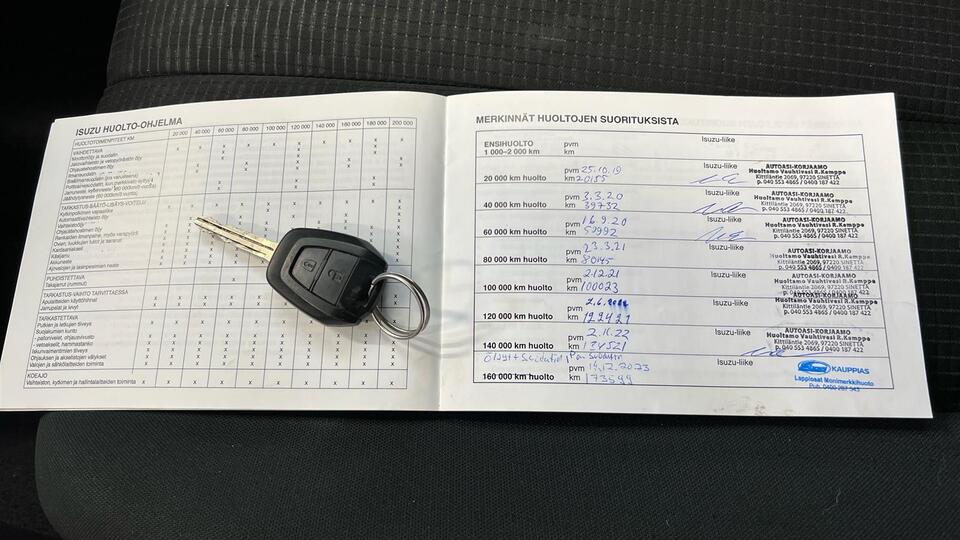 ISUZU HUOLTO-OHJELMA
HUOLTOTOIMENPITEET KM 20 000 40 000 60 000 80 000 100 000 120 000 140 000 160 000 180 000 200 000
VAIHDETTAVA
Moottoriöljy ja suodatin
Jakovaihteisto ja vetopyörästön öljy
Ohjaustehostimen öljy
TARKASTUS-SÄÄTÖ-LISÄYS-VOITELU
Kytkinpolkimen vapaaliike
Automaattivaihteiston öljy
Vaihteistoöljy
Ohjaustehostimen öljy
Renkaiden ilmanpaine, myös varapyörä
Ovien, luukkujen lukot ja saranat
Kardaaniakseli
Käsijarru
Akkuneste
Ajovalojen ja lasinpesimien neste
PUHDISTETTAVA
Takajarrut (rummut)
TARKASTUS-VAIHTO TARVITTAESSA
Apulaitteiden käyttöhihnat
Jarrupalat ja levyt
TARKASTETTAVA
Putkien ja letkujen tiiveys
Suojakumien kunto
- pallonivelet, ohjausnivelet
- vetoakselit, hammastanko
Iskunvaimentimien tiiveys
Ohjauksen ja akselistojen välykset
Valojen ja sähkölaitteiden toiminta
KOEAJO
Vaihteiston, kytkimen ja hallintalaitteiden toiminta
MERKINNÄT HUOLTOJEN SUORITUKSISTA
ENSIHUOLTO pvm Isuzu-liike
1 000–2 000 km km
20 000 km huolto pvm 25.10.19 km 20155 Isuzu-liike
AUTOASI-KORJAAMO
Huoltamo Vauhtivesi R.Kemppe
Kittiläntie 2069, 97220 SINETTÄ
p. 040 553 4865 / 0400 187 422
40 000 km huolto pvm 3.3.20 km 39732 Isuzu-liike
AUTOASI-KORJAAMO
Huoltamo Vauhtivesi R.Kemppe
Kittiläntie 2069, 97220 SINETTÄ
p. 040 553 4865 / 0400 187 422
60 000 km huolto pvm 16.9.20 km Isuzu-liike
AUTOASI-KORJAAMO
Huoltamo Vauhtivesi R.Kemppe
Kittiläntie 2069, 97220 SINETTÄ
p. 040 553 4865 / 0400 187 422
80 000 km huolto pvm 23.3.21 km 80145 Isuzu-liike
AUTOASI-KORJAAMO
Huoltamo Vauhtivesi R.Kemppe
Kittiläntie 2069, 97220 SINETTÄ
p. 040 553 4865 / 0400 187 422
100 000 km huolto pvm 2.12.21 km 100023 Isuzu-liike
AUTOASI-KORJAAMO
Huoltamo Vauhtivesi R.Kemppe
Kittiläntie 2069, 97220 SINETTÄ
120 000 km huolto 2.6.2022 km 122421 Isuzu-liike
AUTOASI-KORJAAMO
Huoltamo Vauhtivesi R.Kemppe
Kittiläntie 2069, 97220 SINETTÄ
p. 040 553 4865 / 0400 187 422
140 000 km huolto pvm 2.11.22 km Isuzu-liike
AUTOASI-KORJAAMO
Huoltamo Vauhtivesi R.Kemppe
Kittiläntie 2069, 97220 SINETTÄ
p. 040 553 4865 / 0400 187 422
160 000 km huolto pvm 14.12.2023 km 173599 Isuzu-liike
KAUPPIAS
Lappiosat Monimerkkihuolto
Puh. 0400-287 343